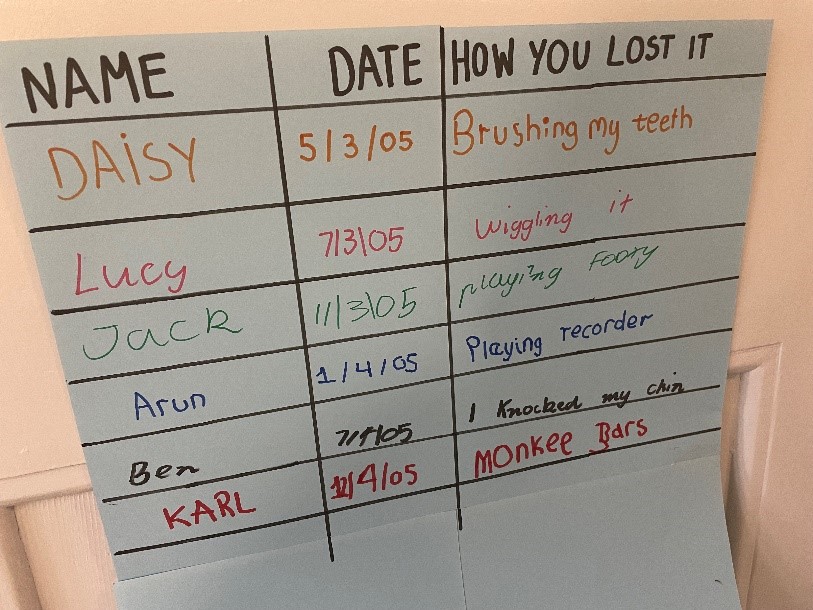 NAME DATE HOW YOU LOST IT
DAiSY 5/3/05 Brushing my teeth
Lucy 7/3/05 wiggling it
Jack 11/3/05 playing Footy
Arun 1/4/05 Playing recorder
Ben 7/4/05 I Knocked my chin
KARL 12/4/05 MOnkee Bars